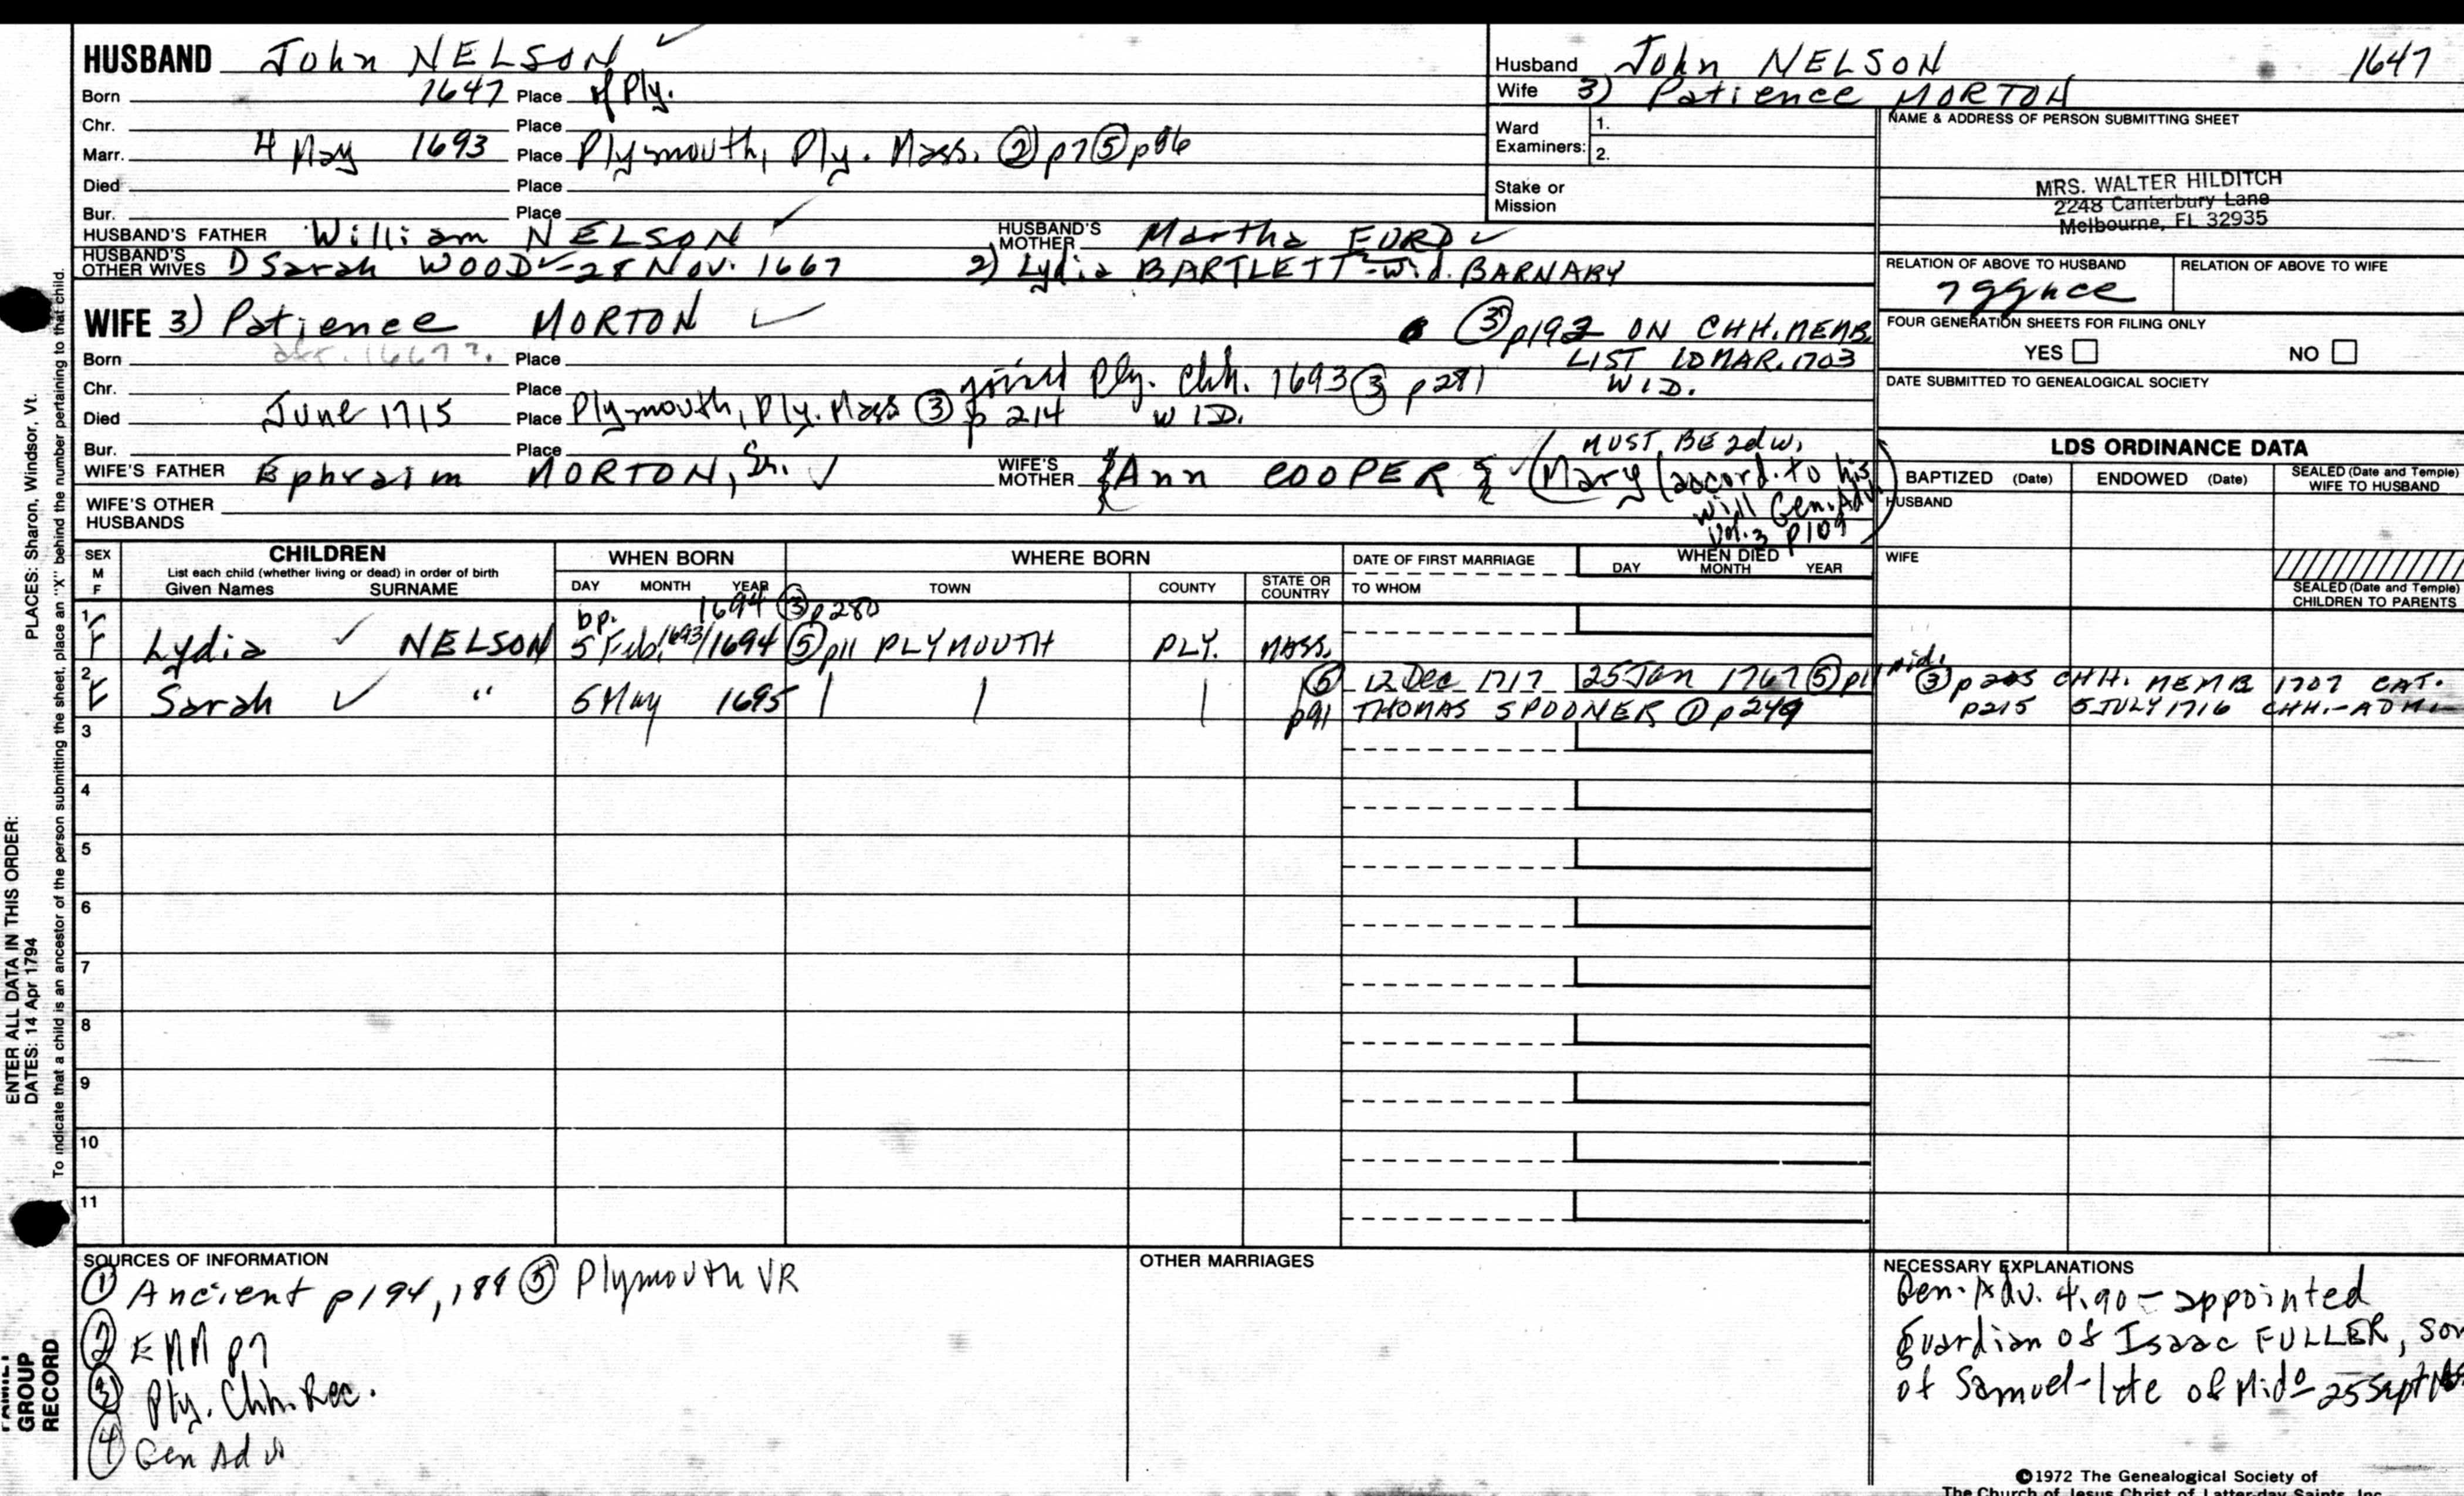 HUSBAND John NELSON ✓
Born 1647 Place of Ply.
Chr. Place
Marr. 4 May 1693 Place Plymouth, Ply. Mass. ② p7 ⑤ p86
Died Place
Bur. Place
HUSBAND'S FATHER William NELSON ✓ HUSBAND'S MOTHER Martha FORD ✓
HUSBAND'S OTHER WIVES 1) Sarah WOOD ✓ - 28 Nov. 1667 2) Lydia BARTLETT - wid. BARNABY
Husband John NELSON 1647
Wife 3) Patience MORTON
Ward Examiners: 1.
2.
Stake or Mission
NAME & ADDRESS OF PERSON SUBMITTING SHEET
MRS. WALTER HILDITCH
2248 Canterbury Lane
Melbourne, FL 32935
RELATION OF ABOVE TO HUSBAND RELATION OF ABOVE TO WIFE
7ggnce
FOUR GENERATION SHEETS FOR FILING ONLY
YES NO
DATE SUBMITTED TO GENEALOGICAL SOCIETY
WIFE 3) Patience MORTON ✓
③ p192 ON CHH. MEMB.
LIST 10 MAR. 1703
WID.
Born abt. 1667? Place
Chr. Place joined Ply. Chh. 1693 ③ p281
Died June 1715 Place Plymouth, Ply. Mass ③ p 214 WID.
Bur. Place
WIFE'S FATHER Ephraim MORTON, Sr. ✓ WIFE'S MOTHER {Ann COOPER} ✓
MUST BE 2d w,
(Mary (accord. to his
will Gen. Adv.
Vol. 3 p109
WIFE'S OTHER HUSBANDS
LDS ORDINANCE DATA
BAPTIZED (Date) ENDOWED (Date) SEALED (Date and Temple) WIFE TO HUSBAND
HUSBAND
WIFE
SEALED (Date and Temple) CHILDREN TO PARENTS
SEX M F
CHILDREN
List each child (whether living or dead) in order of birth
Given Names SURNAME
WHEN BORN
DAY MONTH YEAR
WHERE BORN
TOWN COUNTY STATE OR COUNTRY
DATE OF FIRST MARRIAGE
TO WHOM
WHEN DIED
DAY MONTH YEAR
bp. 1694 ③ p280
1 F Lydia ✓ NELSON 5 Feb. 1693/1694 ⑤ p11 PLYMOUTH PLY. MASS.
2 F Sarah ✓ " 6 May 1695
⑤ p91 12 Dec 1717 25 Jan 1767 ⑤ p11
THOMAS SPOONER ① p249
③ p 205 CHH. MEMB 1707 CAT.
p215 5 JULY 1716 CHH.-ADM.
3
4
5
6
7
8
9
10
11
SOURCES OF INFORMATION
① Ancient p194, 188 ⑤ Plymouth VR
② EMM p7
③ Ply. Chh. Rec.
④ Gen Adv
OTHER MARRIAGES
NECESSARY EXPLANATIONS
Gen. Adv. 4.90 - appointed
guardian of Isaac FULLER, son
of Samuel - late of Mido 25 Sept
©1972 The Genealogical Society of
The Church of Jesus Christ of Latter-day Saints, Inc.
PLACES: Sharon, Windsor, Vt.
To indicate that a child is an ancestor of the person submitting the sheet, place an "X" behind the number pertaining to that child.
ENTER ALL DATA IN THIS ORDER:
DATES: 14 Apr 1794
FAMILY
GROUP
RECORD